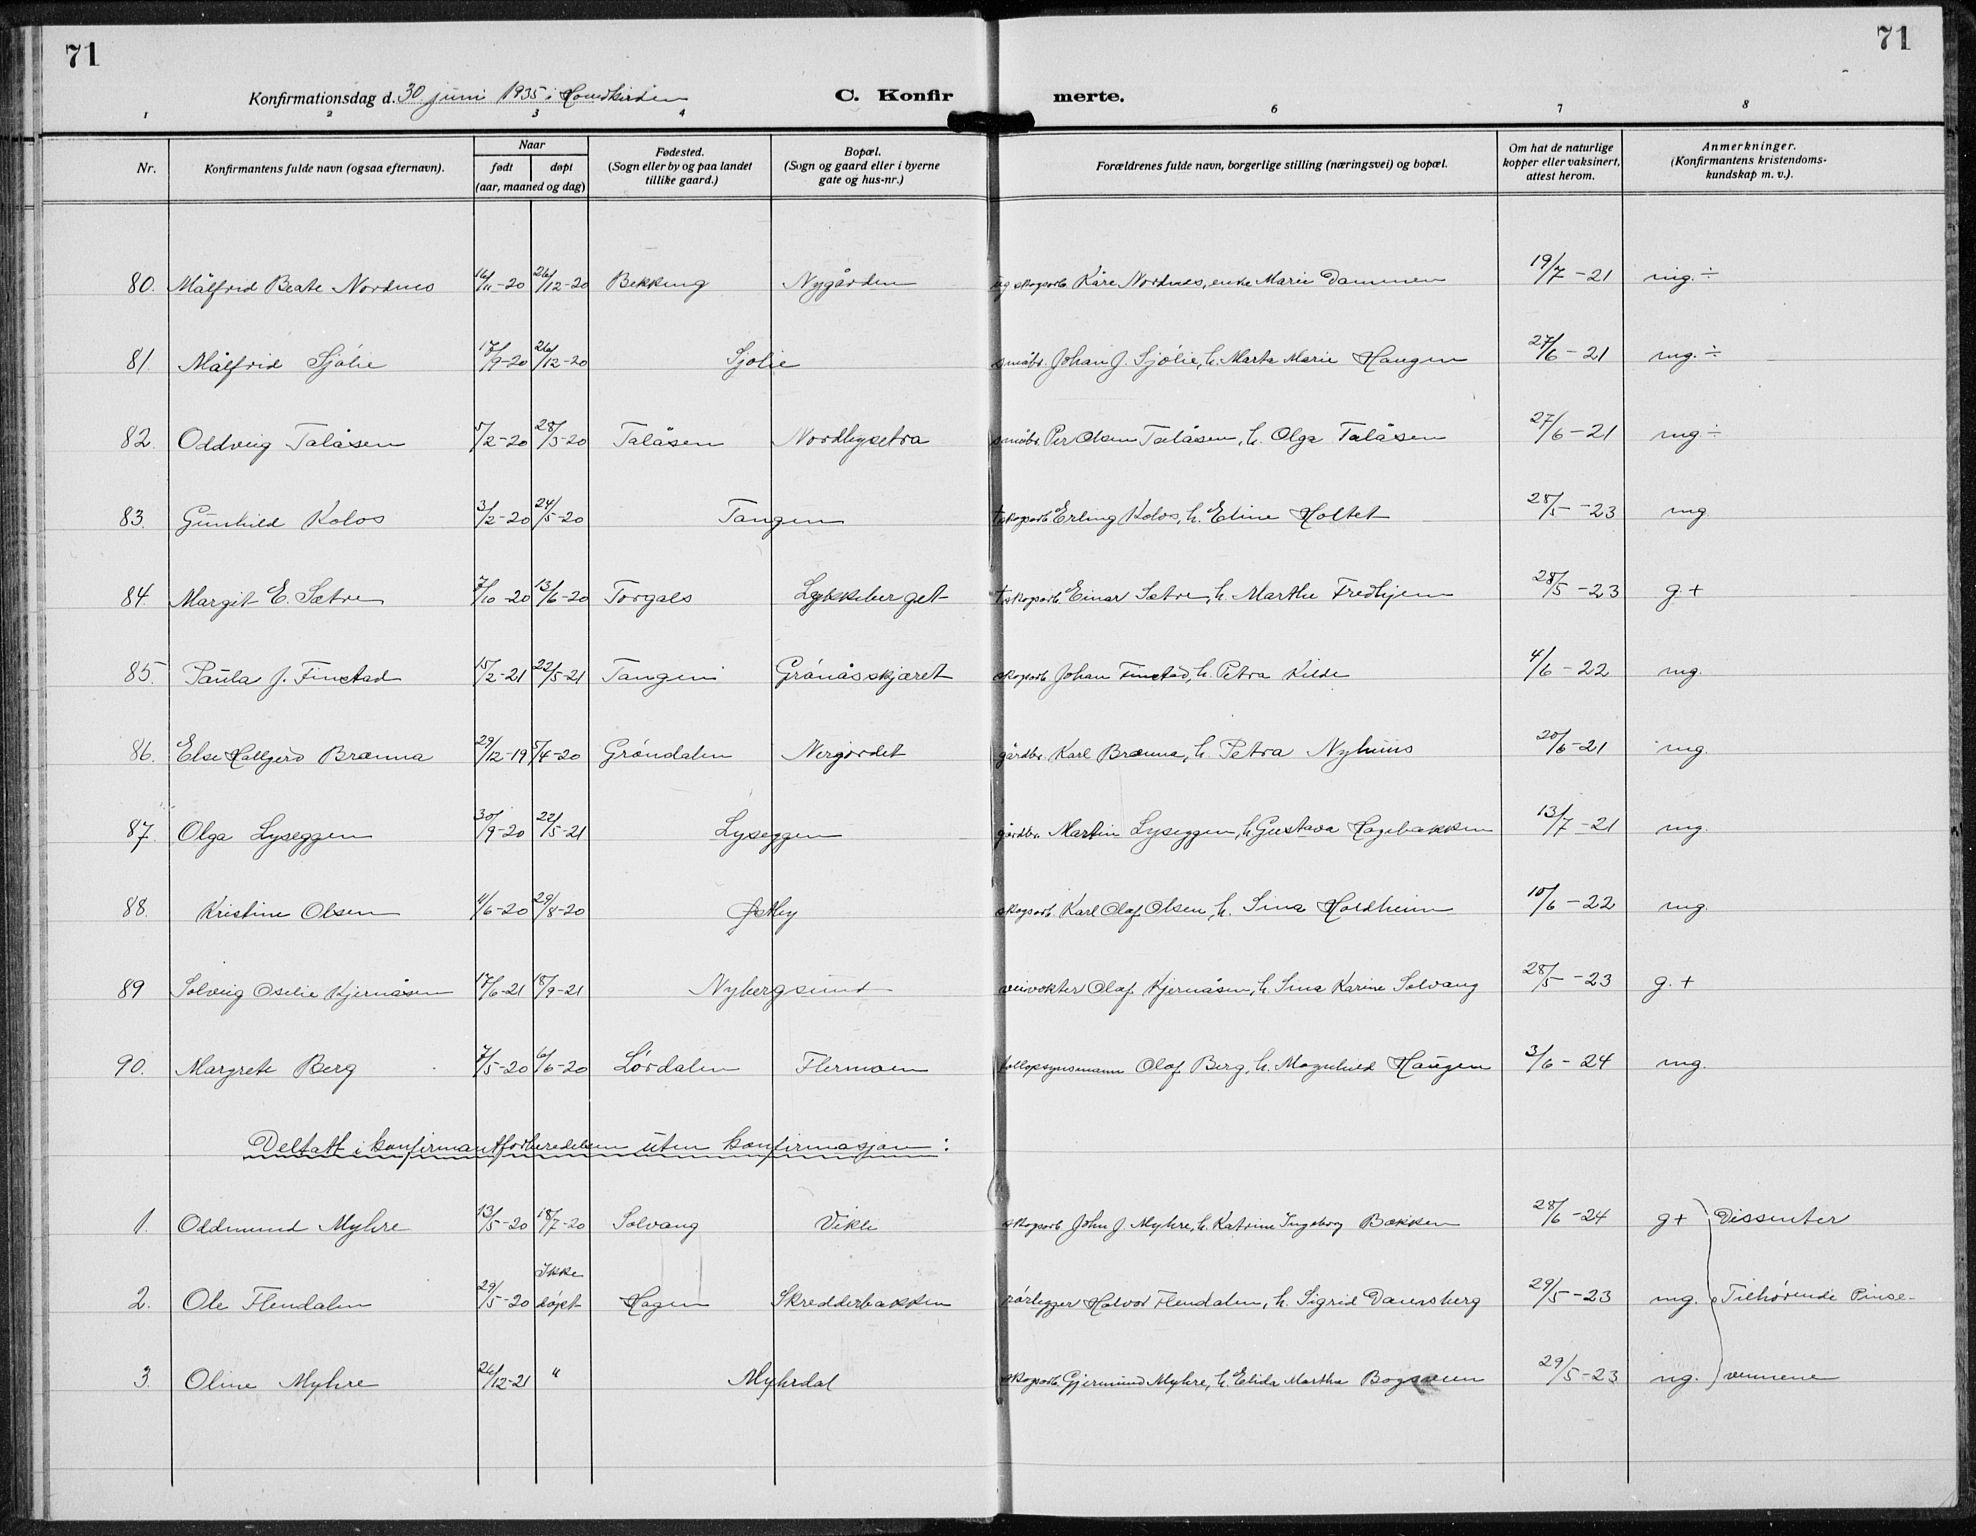 71
71
Konfirmationsdag d. 30 juni 1935 i Hovedkirken
C. Konfirmerte.
1 2 3 4 6 7 8
Nr. Konfirmantens fulde navn (ogsaa efternavn). Naar født døpt (aar, maaned og dag) Fødested. (Sogn eller by og paa landet tillike gaard.) Bopæl. (Sogn og gaard eller i byerne gate og hus-nr.) Forældrenes fulde navn, borgerlige stilling (næringsvei) og bopæl. Om hat de naturlige kopper eller vaksinert, attest herom. Anmerkninger. (Konfirmantens kristendoms-kundskap m. v.).
80. Målfrid Beate Nordnes 16/11-20 26/12-20 Bekkeng Nygården ug skogsarb. Kåre Nordnes, enke Marie Dammen 19/7-21 mg. ÷
81. Målfrid Sjølie 17/9-20 26/12-20 Sjølie småbr. Johan J. Sjølie, h. Marta Marie Haugen 27/6-21 mg. ÷
82. Oddveig Talåsen 5/2-20 28/3-20 Talåsen Nordbysetra småbr. Per Olsen Talåsen, h. Olga Talåsen 27/6-21 mg ÷
83. Gunhild Kolos 3/2-20 24/5-20 Tangen t. skogsarb. Erling Kolos, h. Eline Holtet 28/5-23 mg
84. Margit E. Sætre 7/10-20 13/6-20 Torgals Lykkeberget t. skogsarb. Einar Sætre, h. Marthe Fredhjem 28/5-23 g. +
85. Paula J. Finstad 15/2-21 22/5-21 Tangen Grånåsskjæret skogsarb. Johan Finstad, h. Petra Kilde 4/6-22 mg.
86. Else Hallgerd Brænna 29/12-19 5/4-20 Grøndalen Nergardet gårdbr. Karl Brænna, h. Petra Nyhuus 20/6-21 mg.
87. Olga Lyseggen 30/9-20 22/5-21 Lyseggen gårdbr. Martin Lyseggen, h. Gustava Hagebakken 13/7-21 mg.
88. Kristine Olsen 11/6-20 29/8-20 Østby skogsarb. Karl Olaf Olsen, h. Sina Holdheim 10/6-22 mg.
89 Solveig Oselie Kjernåsen 17/6-21 18/9-21 Nybergsund veivokter Olaf Kjernåsen, h. Sina Karine Solvang 28/5-23 g. +
90. Margrete Berg 7/5-20 6/6-20 Lørdalen Flermoen tollopsynsmann Olaf Berg, h. Magnhild Haugen 3/6-24 mg.
Deltatt i konfirmantforberedelsen uten konfirmasjon:
1. Oddmund Myhre 13/5-20 18/7-20 Solvang Vikle skogsarb. John J. Myhre, h. Katrine Ingeborg Bakken 28/6-24 g + Dissenter
2. Ole Flendalen 29/5-20 Ikke døpt Hagen Skredderbakken rørlegger Halvor Flendalen, h. Sigrid Daensberg 29/5-23 mg. Tilhørende Pinse-
3. Oline Myhre 26/12-21 " Myhrdal skogsarb. Gjermund Myhre, h. Elida Martha 29/5-23 ng. vennene